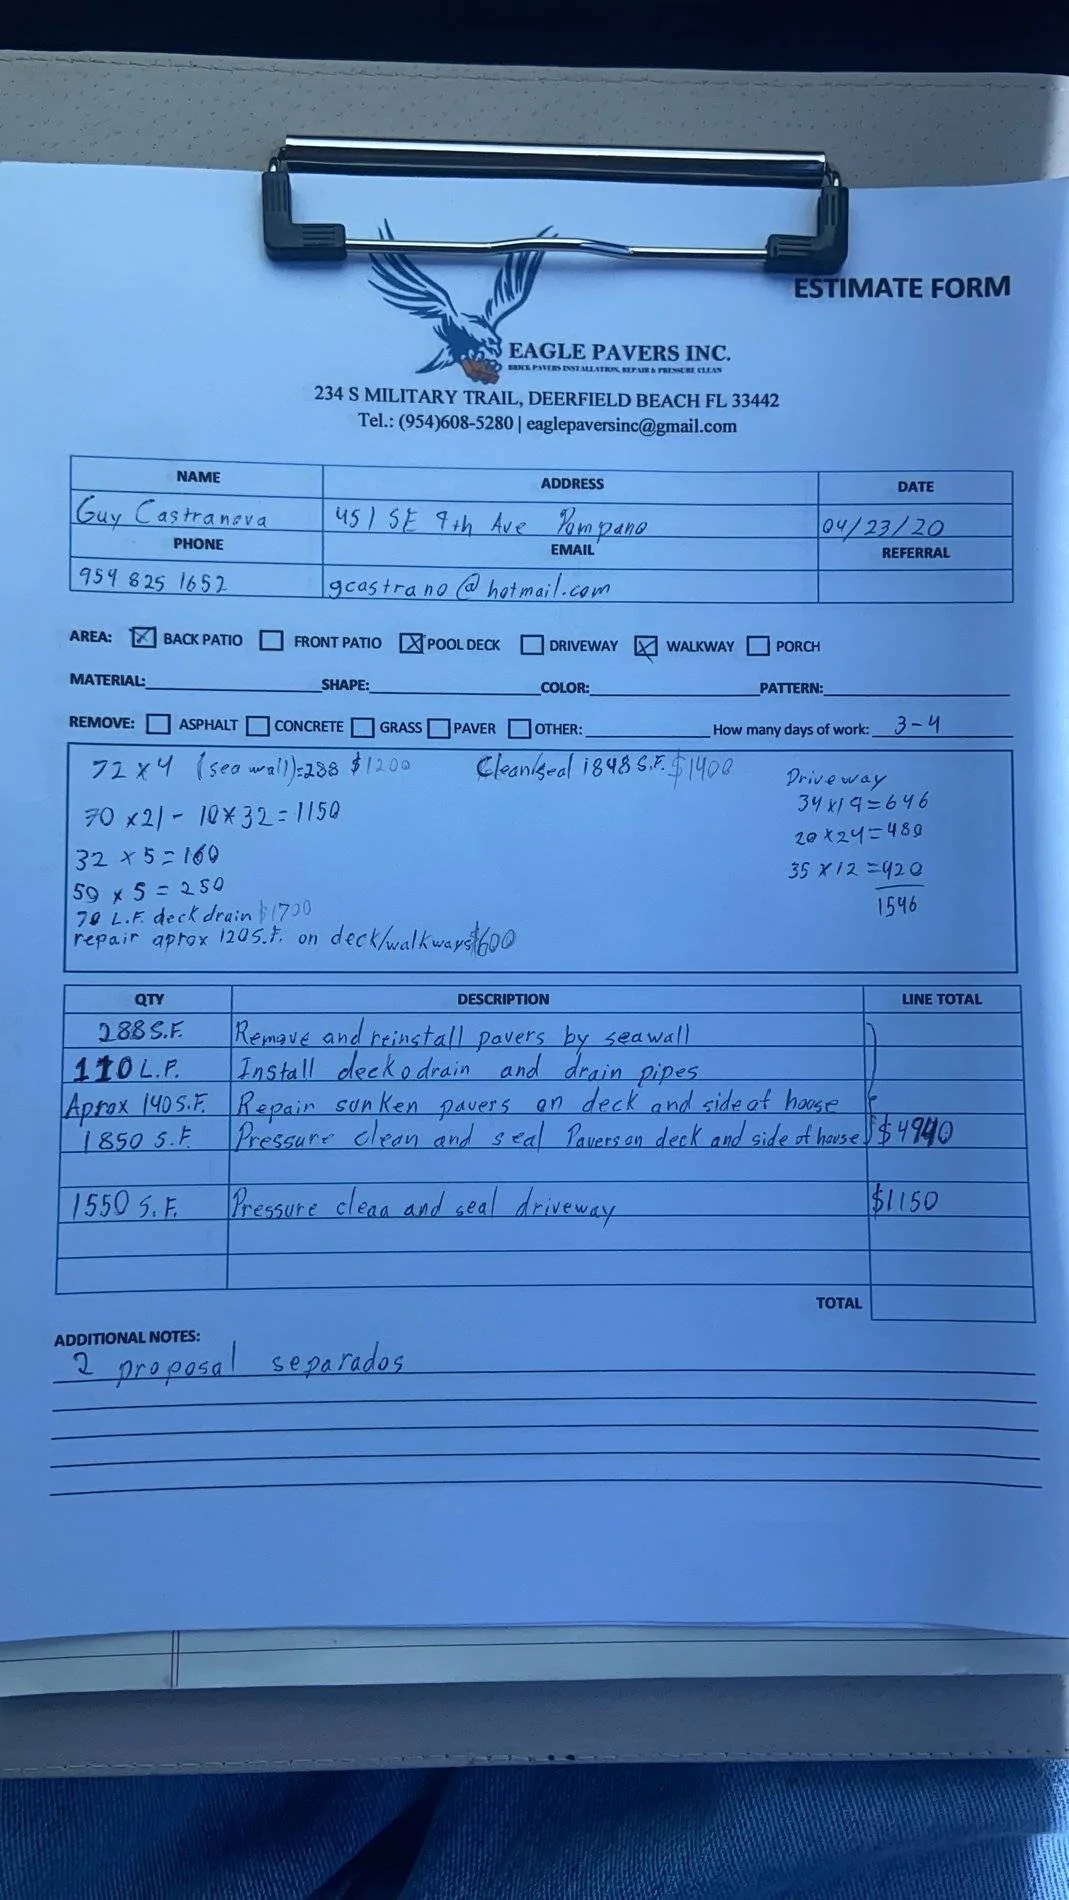 ESTIMATE FORM
EAGLE PAVERS INC.
BRICK PAVERS INSTALLATION, REPAIR & PRESSURE CLEAN
234 S MILITARY TRAIL, DEERFIELD BEACH FL 33442
Tel.: (954)608-5280 | eaglepaversinc@gmail.com
NAME ADDRESS DATE
Guy Castranova 451 SE 9th Ave Pompano 04/23/20
PHONE EMAIL REFERRAL
954 825 1652 gcastrano@hotmail.com
AREA: BACK PATIO FRONT PATIO POOL DECK DRIVEWAY WALKWAY PORCH
MATERIAL: SHAPE: COLOR: PATTERN:
REMOVE: ASPHALT CONCRETE GRASS PAVER OTHER: How many days of work: 3-4
72 x 4 (sea wall)=288 $1200 Clean/seal 1848 S.F. $1400
Driveway
34x19=646
70 x21 - 10x32=1150
20x24=480
32 x 5=160
35 x12=420
50 x 5 = 250
1546
70 L.F. deck drain $1700
repair aprox 120S.F. on deck/walkways $600
QTY DESCRIPTION LINE TOTAL
288 S.F. Remove and reinstall pavers by seawall
110 L.F. Install deckodrain and drain pipes
Aprox 140 S.F. Repair sunken pavers on deck and side of house
1850 S.F. Pressure clean and seal Pavers on deck and side of house $4940
1550 S.F. Pressure clean and seal driveway $1150
TOTAL
ADDITIONAL NOTES:
2 proposal separados